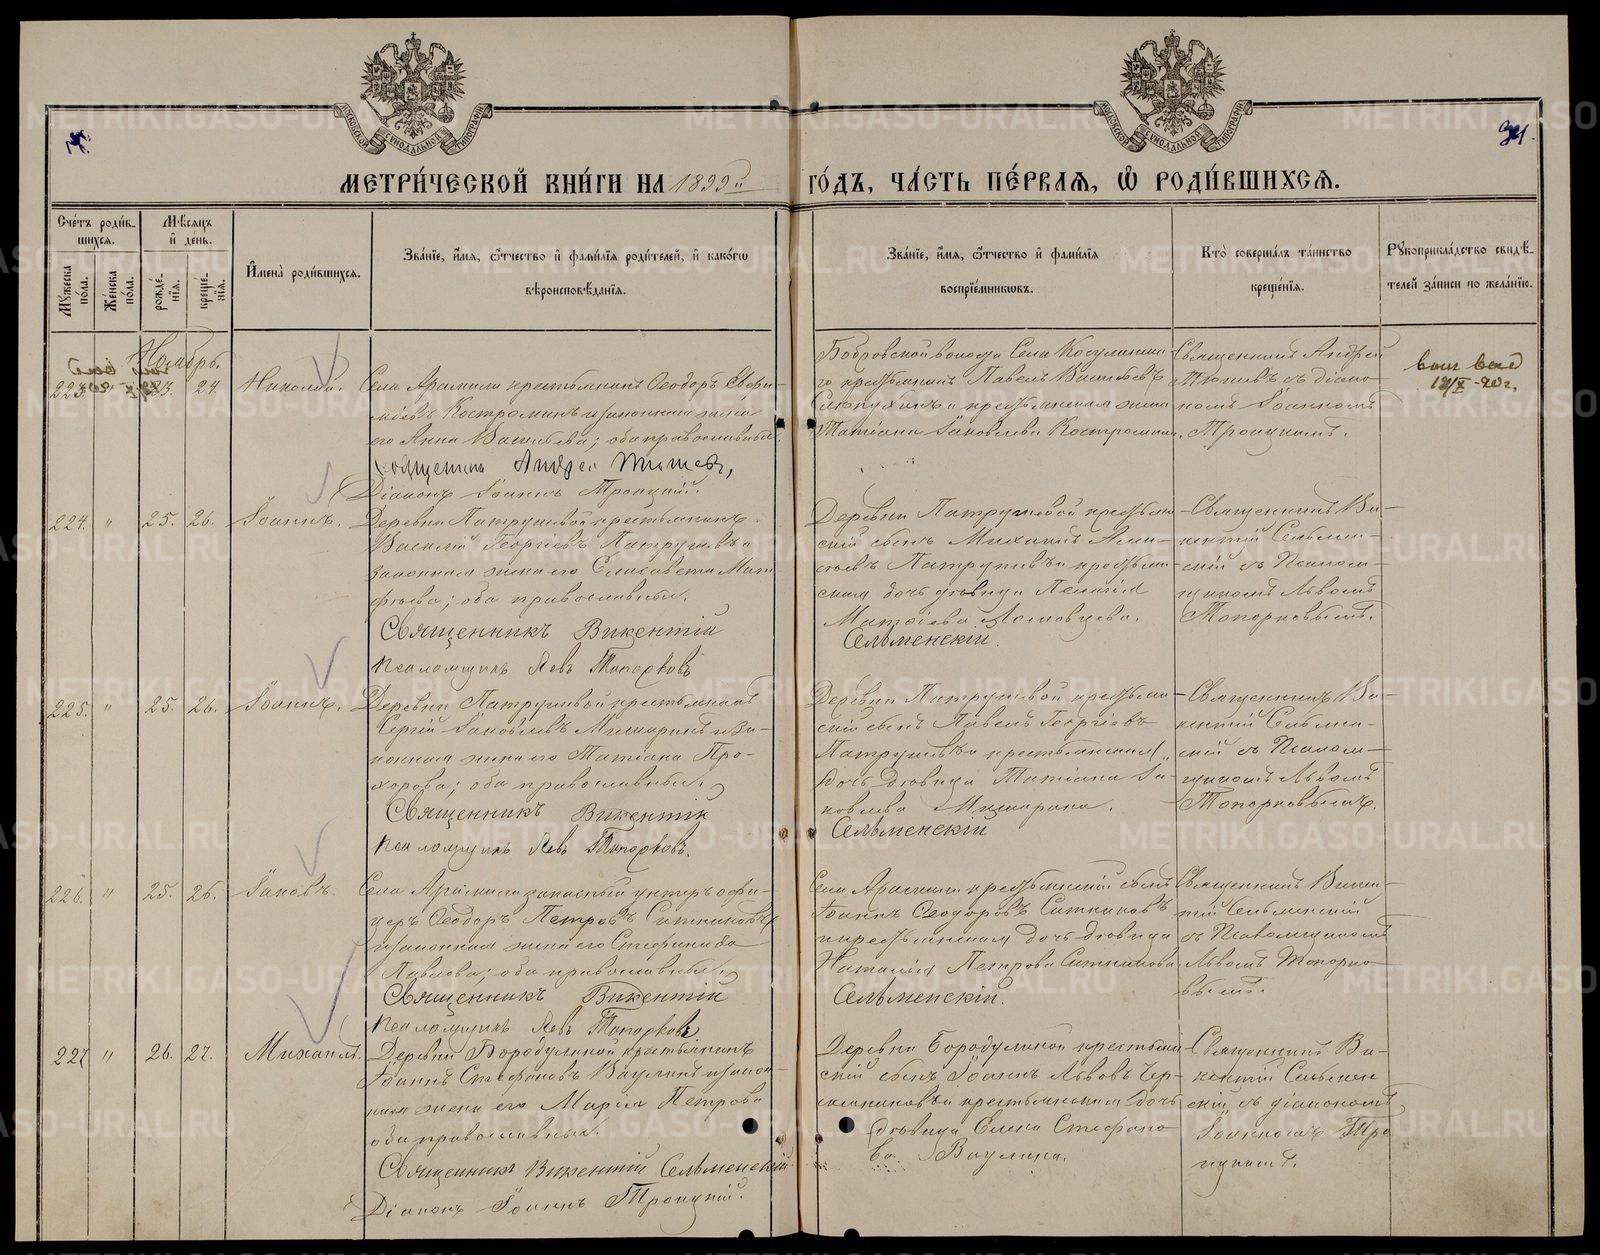 МЕТРИ́ЧЕСКОЙ КНИ́ГИ НА 1899й ГО́ДЪ, ЧА́СТЬ ПЕ́РВАЯ, Ѡ РОДИ́ВШИХСЯ.
Сче́тъ роди́в-
шихся.
Му́жеска по́ла.
Же́нска по́ла.
Мѣ́сяцъ
и день.
рожде́-
нія.
креще́-
нія.
Имена̀ роди́вшихся.
Зва́нїе, и́мя, ѻ́тчество и фамилїя роди́телей, и како́гѡ
вѣроисповѣ́данїя.
Зва́нїе, и́мя, ѻ́тчество и фамилїя
воспрїе́мникѡвъ.
Кто̀ соверша́лъ та́инство
креще́нїя.
Рукоприкла́дство свидѣ́-
телей за́писи по жела́нїю.
Ноябрь.
223. 23. 24. Николай.
Села Арамили крестьянинъ Ѳеодоръ
Костроминъ и законная жена
его Анна Васильева; оба православные.
Священникъ Андрей
Діаконъ Іоаннъ Троицкій.
Бобровской волости Села Косулинска-
го крестьянинъ Павелъ Васильевъ
и крестьянская жена
Татіана Іаковлева Костромина.
Священникъ Андрей
съ Діако-
номъ Іоанномъ
Троицкимъ.
224. " 25. 26. Іоаннъ.
Деревни Патрушевой крестьянинъ
Василій Георгіевъ Патрушевъ и
законная жена его Елисавета Мат-
фіева; оба православные.
Священникъ Викентій
Сельменскій.
Псаломщикъ Левъ Топорковъ
Деревни Патрушевой крестьян-
скій сынъ Михаилъ
Патрушевъ и крестьян-
ская дочь дѣвица Пелагія
Матѳіева
Священникъ Ви-
кентій Сельмен-
скій съ Псалом-
щикомъ Львомъ
Топорковымъ.
225. " 25. 26. Іоаннъ.
Деревни Патрушевой крестьянинъ
Сергій Іаковлевъ Мишаринъ и за-
конная жена его Татіана Про-
хорова; оба православные.
Священникъ Викентій
Сельменскій
Псаломщикъ Левъ Топорковъ.
Деревни Патрушевой крестьян-
скій сынъ Павелъ Георгіевъ
Патрушевъ и крестьянская
дочь дѣвица Татіана Іа-
ковлева Мишарина.
Священникъ Ви-
кентій Сельмен-
скій съ Псалом-
щикомъ Львомъ
Топорковымъ.
226. " 25. 26. Іаковъ.
Села Арамили запасный унтеръ офи-
церъ Ѳеодоръ Петровъ Ситниковъ
и законная жена его Стефанида
Павлова; оба православные.
Священникъ Викентій
Сельменскій.
Псаломщикъ Левъ Топорковъ
Села Арамили крестьянскій сынъ
Іоаннъ Ѳеодоровъ Ситниковъ
и крестьянская дочь дѣвица
Наталія Петрова Ситникова
Священникъ Викен-
тій Сельменскій
съ Псаломщикомъ
Львомъ Топорко-
вымъ.
227 " 26. 27. Михаилъ.
Деревни Бородулиной крестьянинъ
Іоаннъ Стефановъ Ваулинъ и закон-
ная жена его Марія Петрова
оба православные.
Священникъ Викентій Сельменскій
Діаконъ Іоаннъ Троицкій.
Деревни Бородулиной крестьян-
скій сынъ Іоаннъ Львовъ
и крестьянская дочь
дѣвица Елена Стефано-
ва Ваулина.
Священникъ Ви-
кентій Сельмен-
скій съ діакономъ
Іоанномъ Тро-
ицкимъ.
METRIKI.GASO-URAL.RU